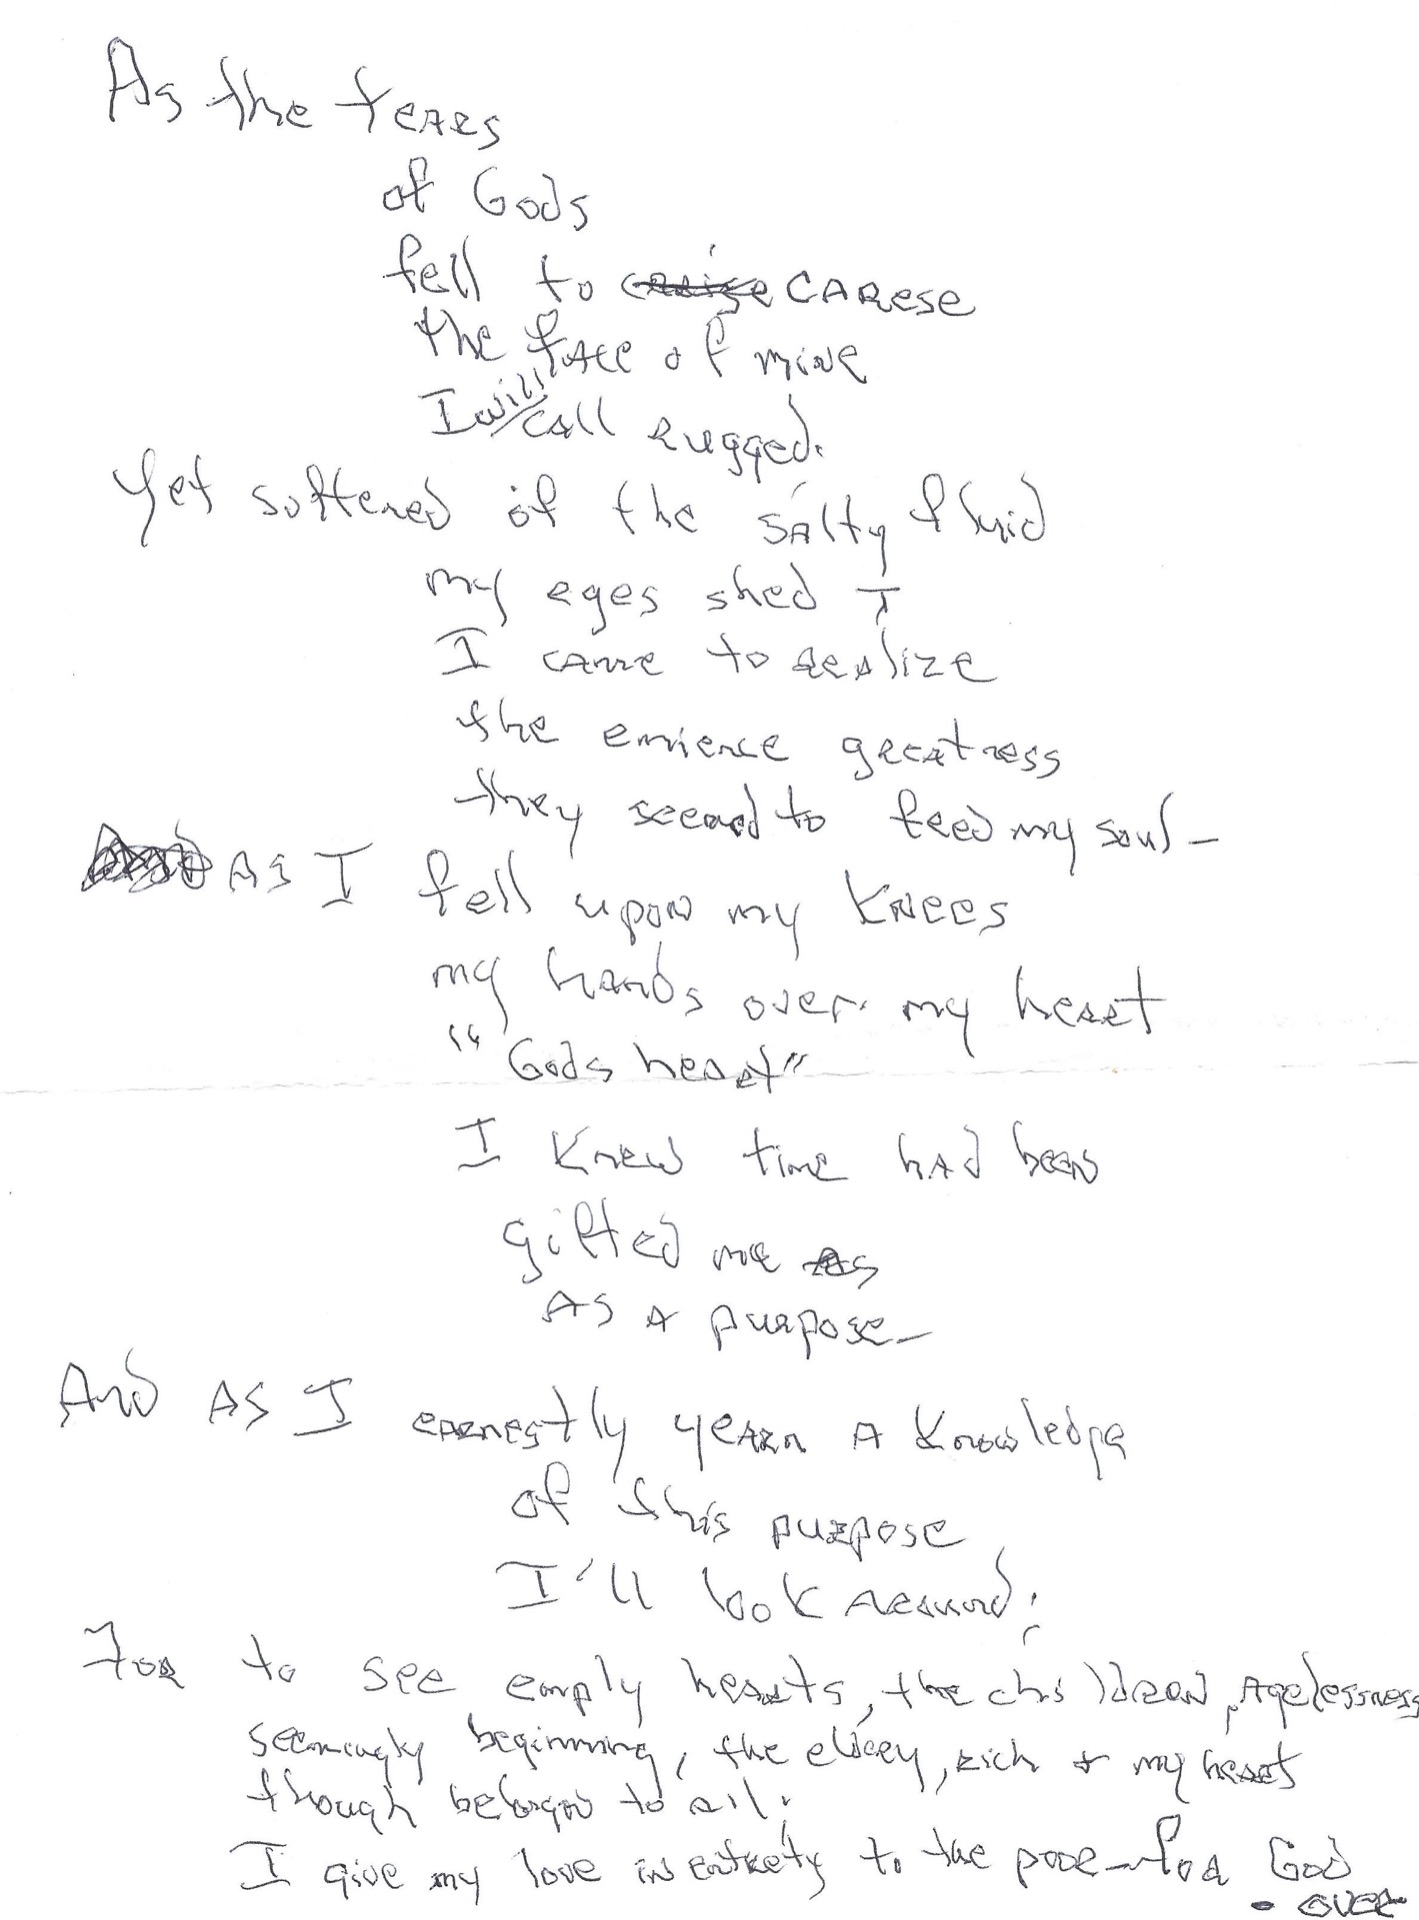 As the tears
of Gods
fell to carese
the face of mine
I will call rugged.
Yet softened of the salty fluid
my eyes shed I
I came to realize
the emience greatness
they seemed to feed my soul -
As I fell upon my knees
my hands over my heart
"Gods heart"
I knew time had been
gifted me as
As a purpose -
And as I earnestly yearn a knowledge
of this purpose
I'll look around;
For to see empty hearts, the children, Agelessness
seemingly beginning, the elderly, rich + my heart
though belongs to all.
I give my love in entirety to the poor - for God
- over